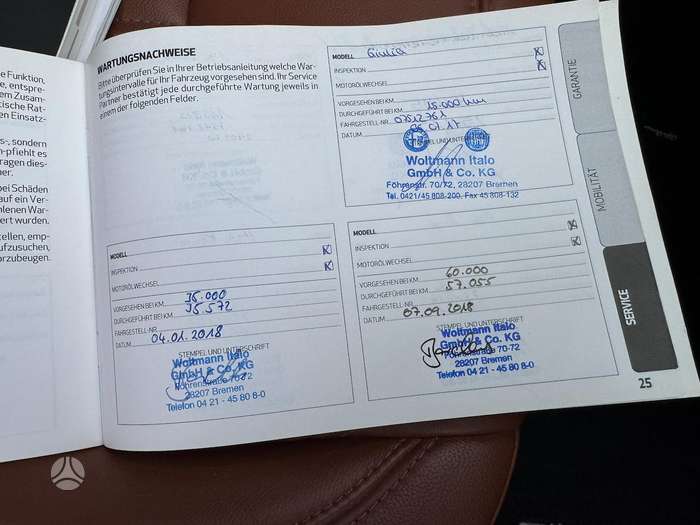 e Funktion,
e, entspre-
tem Zusam-
tische Rat-
en Einsatz-
s-, sondern
n-pfiehlt es
ragen dies-
en.
bei Schäden
auf ein Ver-
hlenen War-
ert wurden.
tellen, emp-
ufzusuchen,
orzubeugen.
WARTUNGSNACHWEISE
Bitte überprüfen Sie in Ihrer Betriebsanleitung welche War-
tungsintervalle für Ihr Fahrzeug vorgesehen sind. Ihr Service
Partner bestätigt jede durchgeführte Wartung jeweils in
einem der folgenden Felder.
MODELL Giulia
INSPEKTION
MOTORÖLWECHSEL
VORGESEHEN BEI KM
DURCHGEFÜHRT BEI KM 15.000 km
FAHRGESTELL-NR. 07512761
DATUM
STEMPEL UND UNTERSCHRIFT
Woltmann Italo
GmbH & Co. KG
Föhrenstr. 70/72, 28207 Bremen
Tel. 0421/45 808-200, Fax 45 808-132
MODELL
INSPEKTION
MOTORÖLWECHSEL
VORGESEHEN BEI KM
DURCHGEFÜHRT BEI KM 35.572
FAHRGESTELL-NR.
DATUM 04.01.2018
STEMPEL UND UNTERSCHRIFT
Woltmann Italo
GmbH & Co. KG
Föhrenstraße 70-72
28207 Bremen
Telefon 04 21 - 45 80 8-0
MODELL
INSPEKTION
MOTORÖLWECHSEL
VORGESEHEN BEI KM 60.000
DURCHGEFÜHRT BEI KM 57.055
FAHRGESTELL-NR.
DATUM 07.09.2018
STEMPEL UND UNTERSCHRIFT
Woltmann Italo
GmbH & Co. KG
Föhrenstraße 70-72
28207 Bremen
Telefon 04 21 - 45 80 8-0
GARANTIE
MOBILITÄT
SERVICE
25